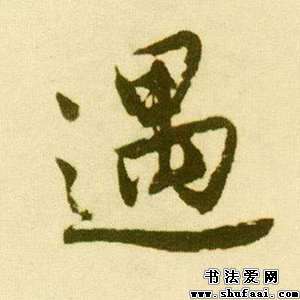 遇
书法爱网
www.shufaai.com